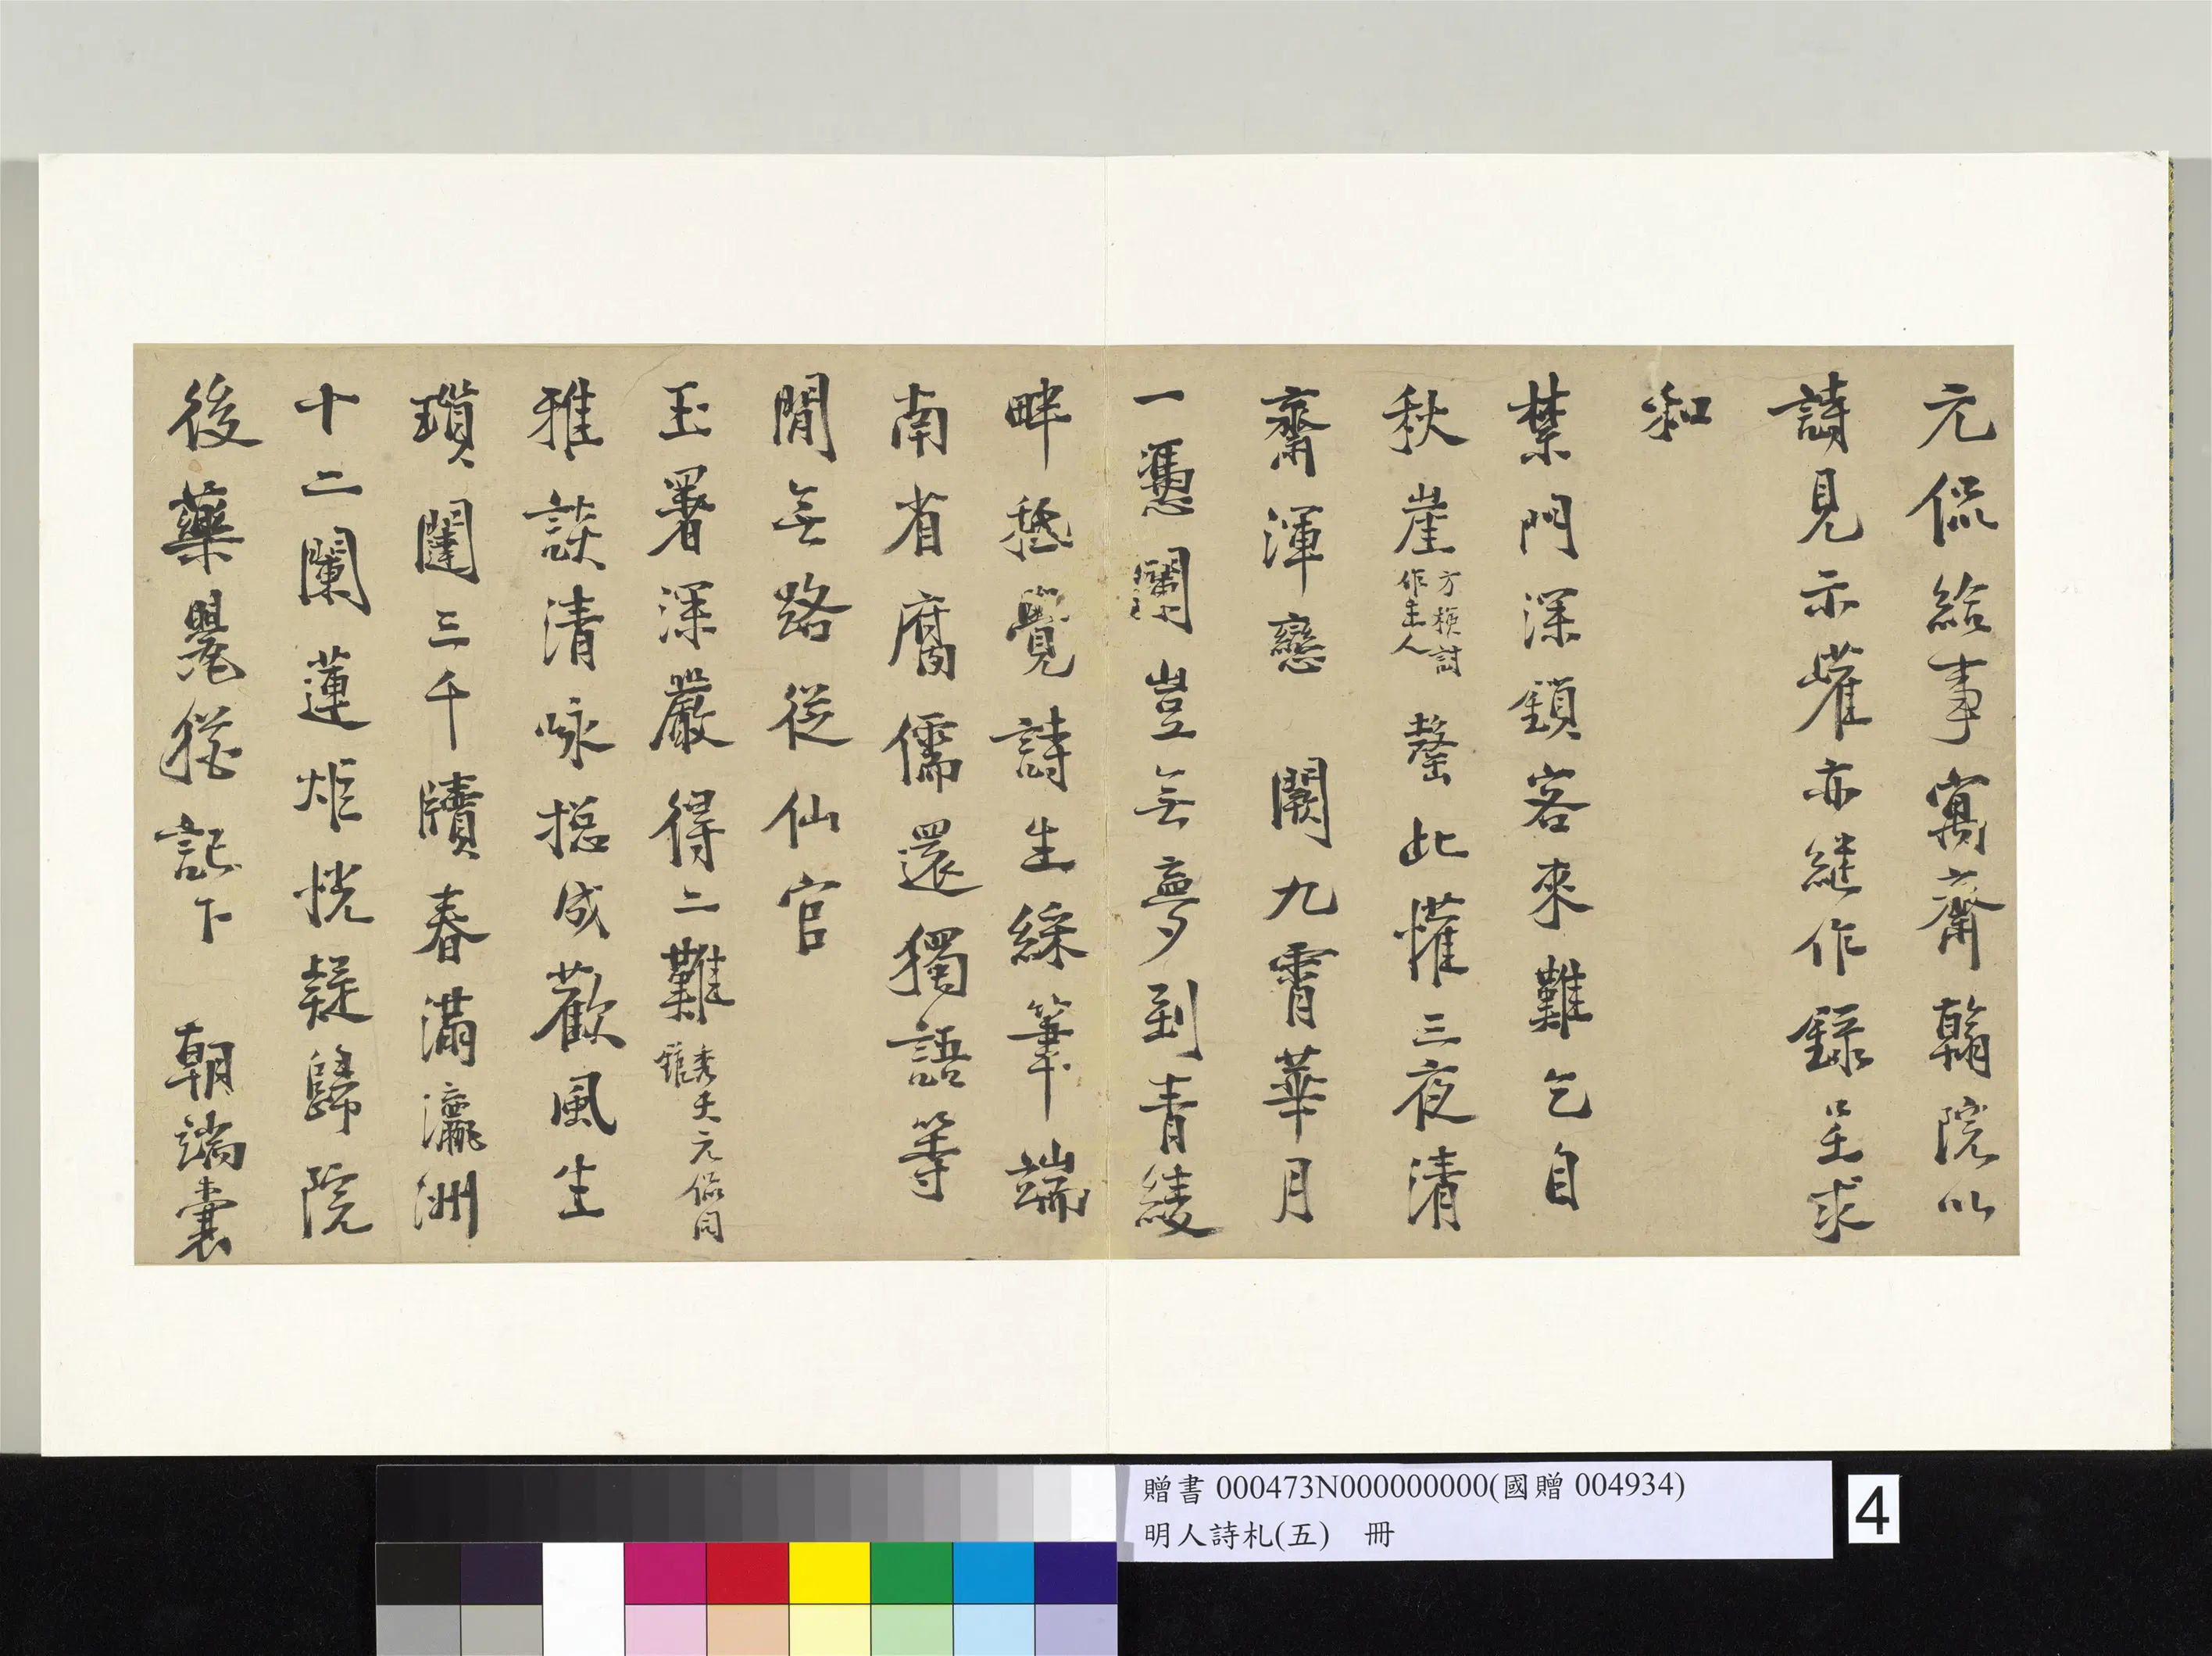 元侃給事寓齋翰院以
詩見示嶊亦繼作錄呈求
和
禁門深鎖客來難乞自
秋崖方檢討作主人罄此懽三夜清
齋渾戀 闕九霄華月
一憑闌豈無夢到青綾
畔愁覺詩生綵筆端
南省腐儒還獨語等
閒無路從仙官
玉署深嚴得二難秀夫元侃同館
雅談清咏捴成歡風生
瑣闥三千牘春滿瀛洲
十二闌蓮炬恍疑歸院
後藥罍猶記下 朝端囊
贈書 000473N000000000(國贈 004934)
明人詩札(五) 冊
4